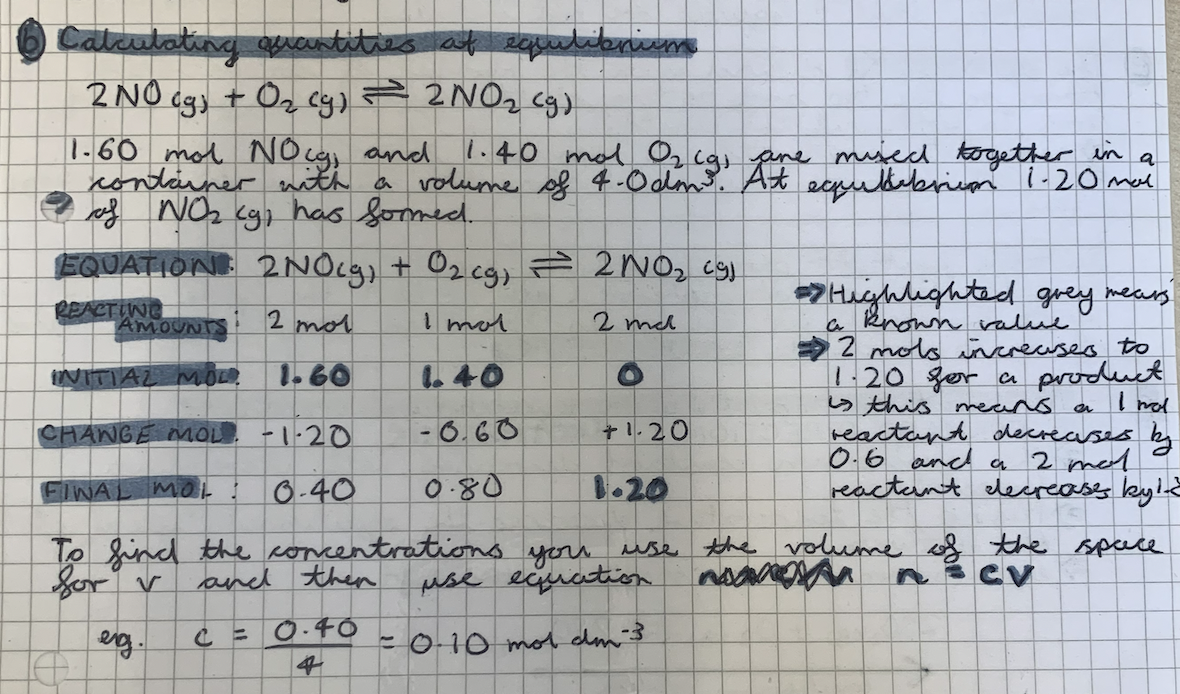 6 Calculating quantities at equilibrium
2NO (g) + O2 (g) ⇌ 2NO2 (g)
1.60 mol NO(g) and 1.40 mol O2 (g) are mixed together in a
container with a volume of 4.0dm³. At equilibrium 1.20 mol
→ of NO2 (g) has formed.
EQUATION: 2NO(g) + O2 (g) ⇌ 2NO2 (g)
REACTING AMOUNTS: 2 mol 1 mol 2 mol
INITIAL MOL: 1.60 1.40 0
CHANGE MOL: -1.20 -0.60 +1.20
FINAL MOL: 0.40 0.80 1.20
⇒ Highlighted grey means
a known value
⇒ 2 mols increases to
1.20 for a product
↳ this means a 1 mol
reactant decreases by
0.6 and a 2 mol
reactant decreases by
To find the concentrations you use the volume of the space
for v and then use equation n = cv
eg. c = 0.40/4 = 0.10 mol dm⁻³